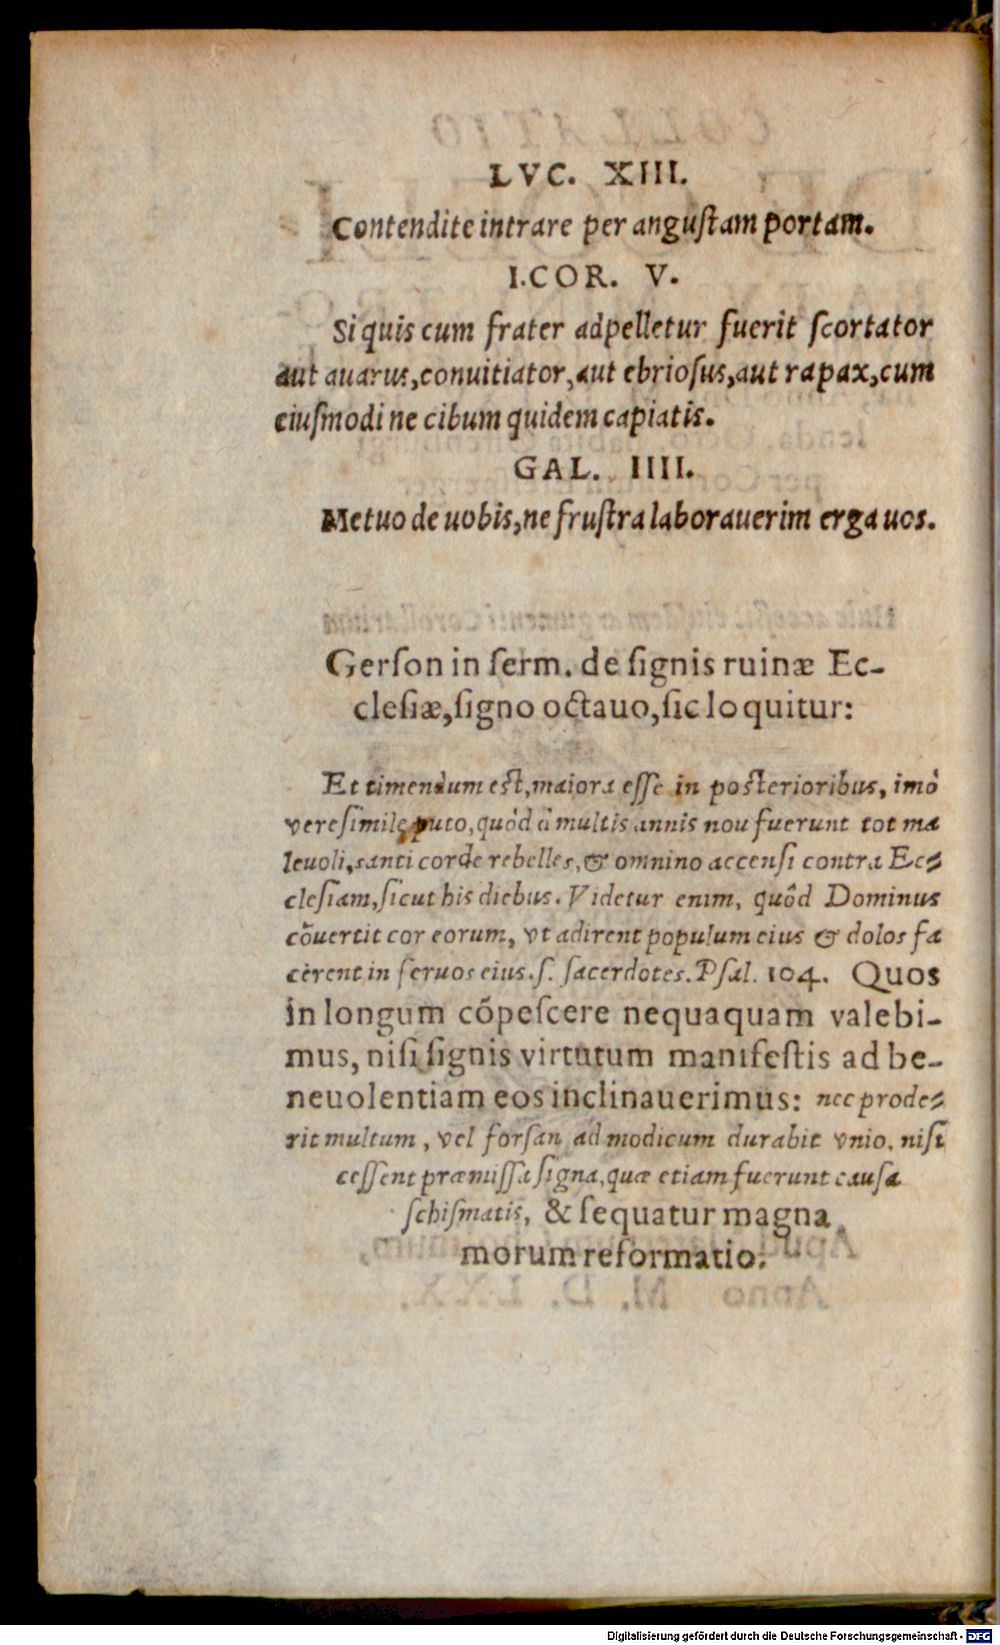 LVC. XIII.
Contendite intrare per angustam portam.
I.COR. V.
Si quis cum frater adpelletur fuerit scortator
aut auarus, conuitiator, aut ebriosus, aut rapax, cum
eiusmodi ne cibum quidem capiatis.
GAL. IIII.
Metuo de uobis, ne frustra laborauerim erga uos.
Gerson in serm. de signis ruinæ Ec-
clesiæ, signo octauo, sic loquitur:
Et timendum est, maiora esse in posterioribus, imò
veresimile puto, quòd à multis annis non fuerunt tot ma
leuoli, tanti corde rebelles, & omnino accensi contra Ec-
clesiam, sicut his diebus. Videtur enim, quôd Dominus
cōuertit cor eorum, vt adirent populum eius & dolos fa
cerent in seruos eius. s. sacerdotes. Psal. 104. Quos
in longum cōpescere nequaquam valebi-
mus, nisi signis virtutum manifestis ad be-
neuolentiam eos inclinauerimus: nec prode-
rit multum, vel forsan ad modicum durabit vnio, nisi
cessent præmissa signa, quæ etiam fuerunt causa
schismatis, & sequatur magna
morum reformatio.
Digitalisierung gefördert durch die Deutsche Forschungsgemeinschaft - DFG